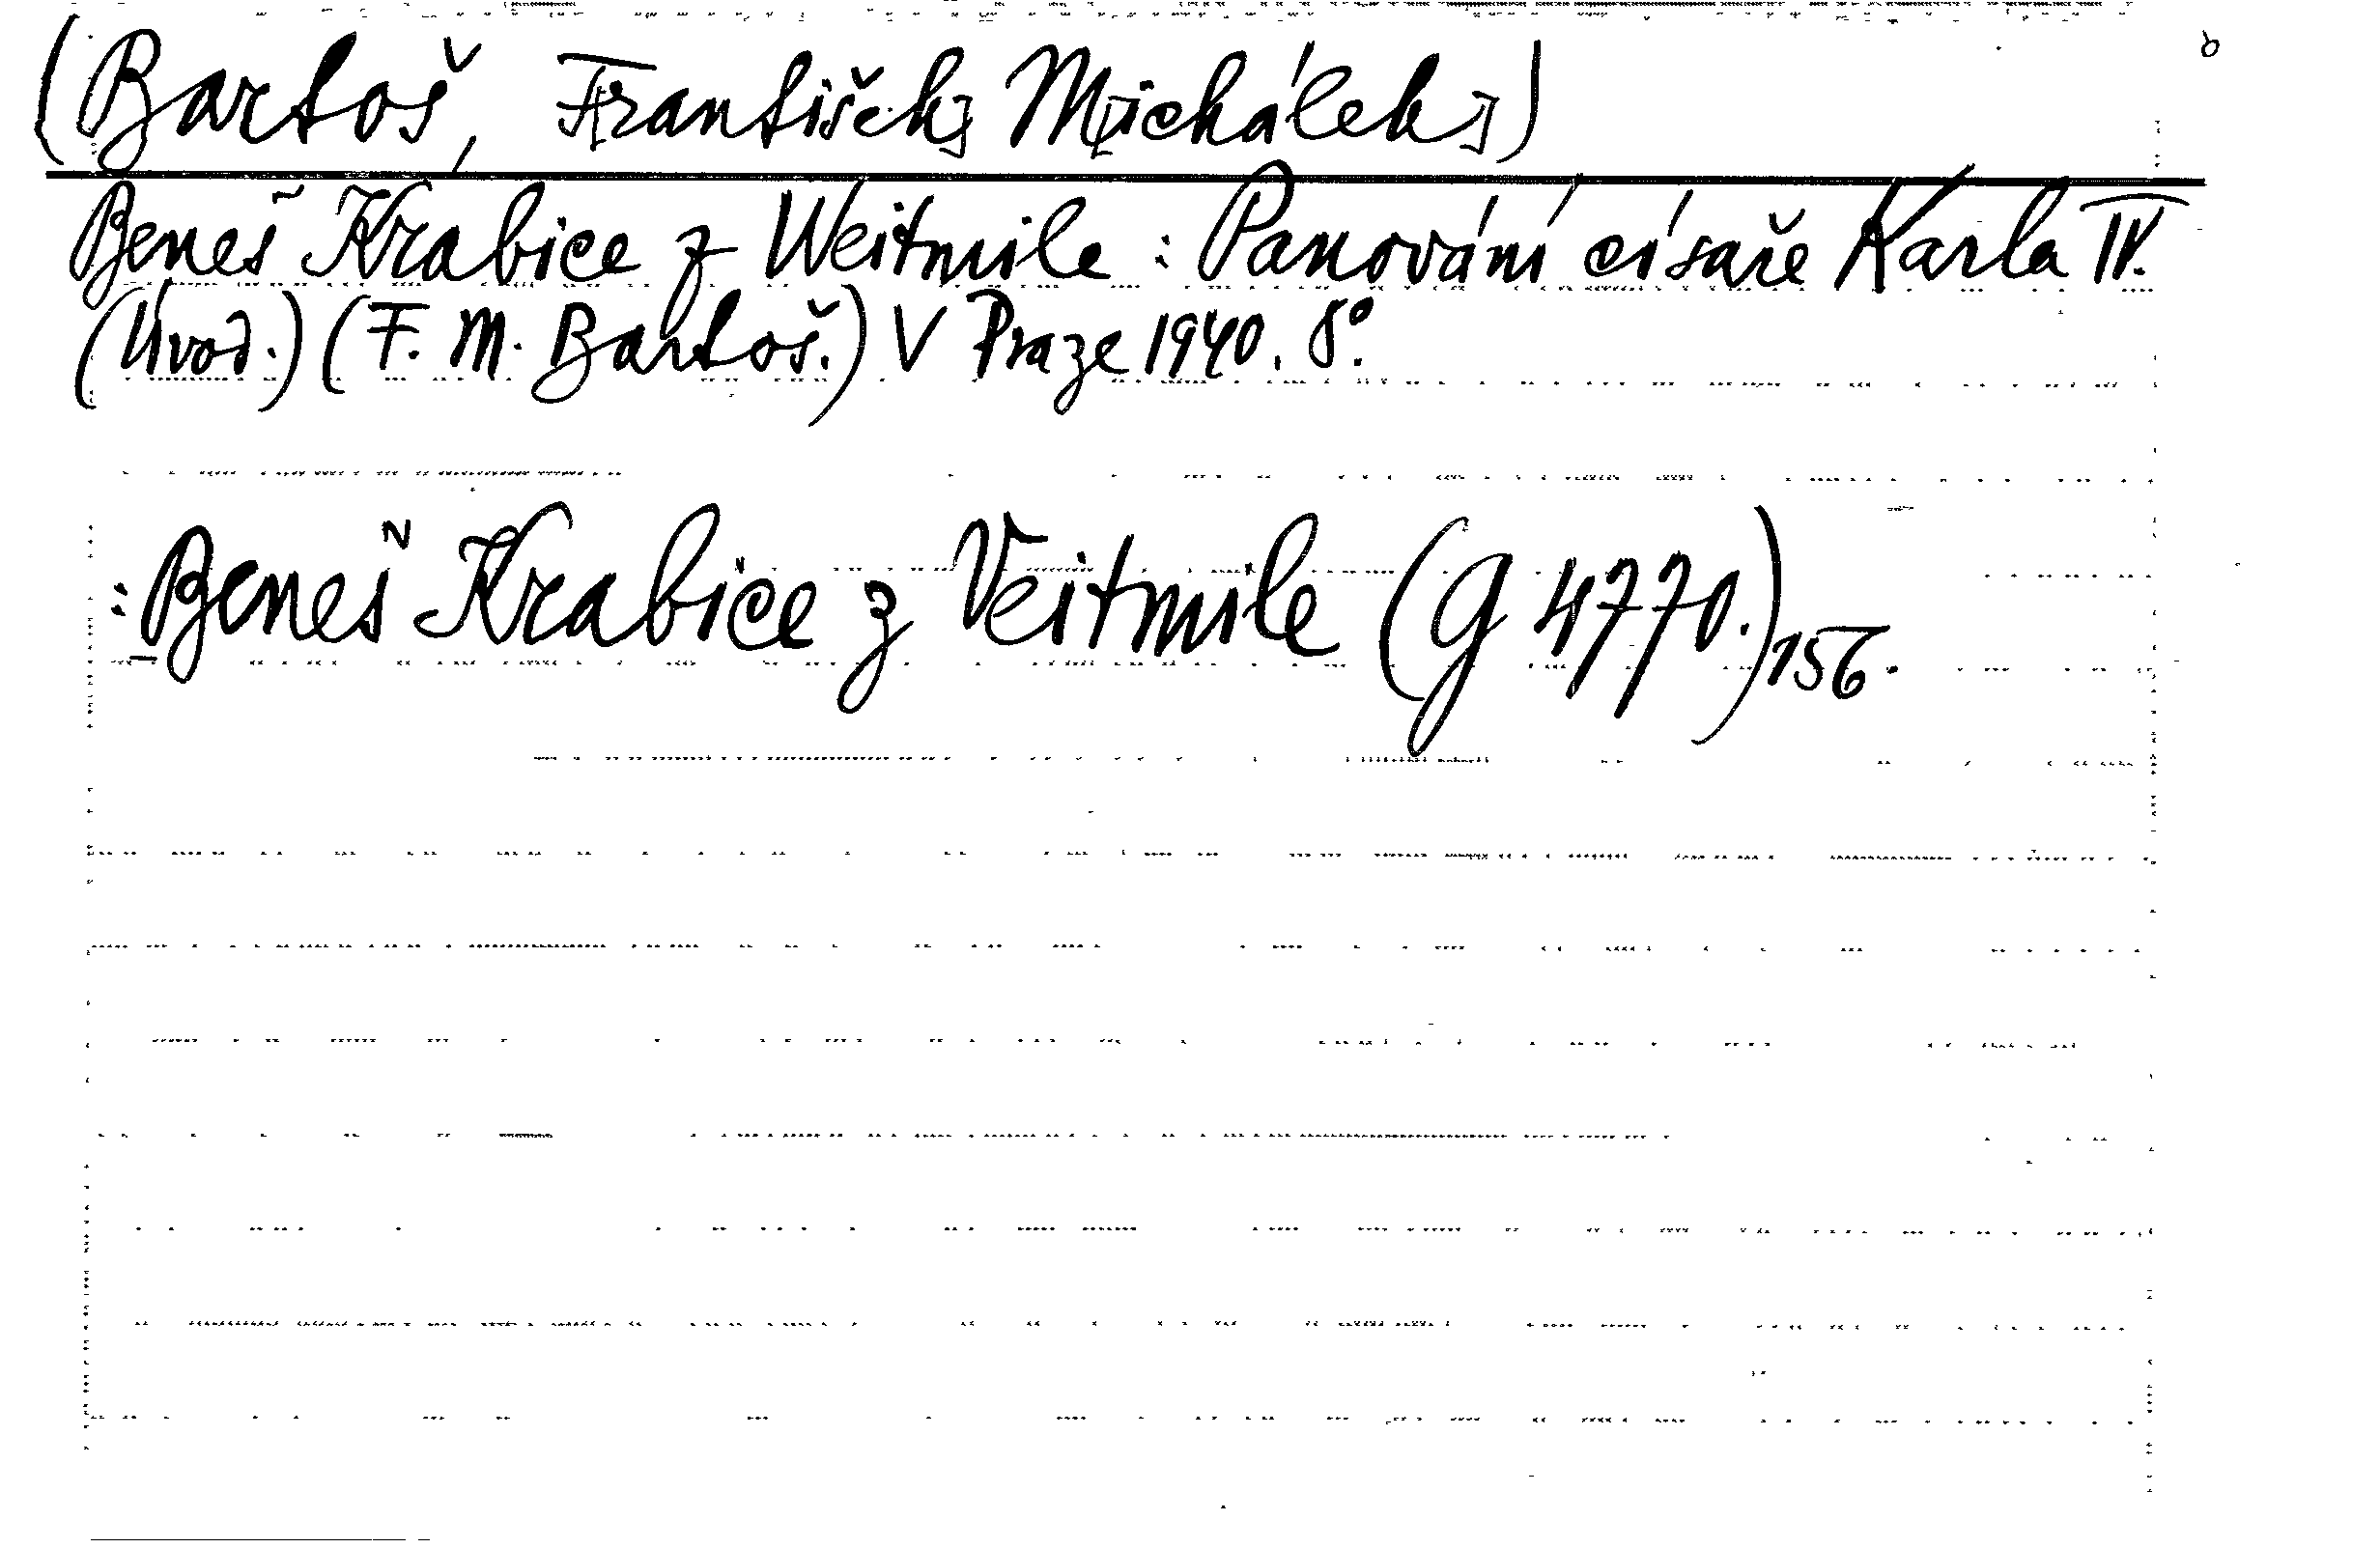 (Bartoš, F[rantišek] M[ichálek])
Beneš Krabice z Weitmile : Panování císaře Karla IV.
(Úvod.) (F. M. Bartoš.) V Praze 1940. 8°.
: Beneš Krabice z Veitmile (G 4770.) 156.